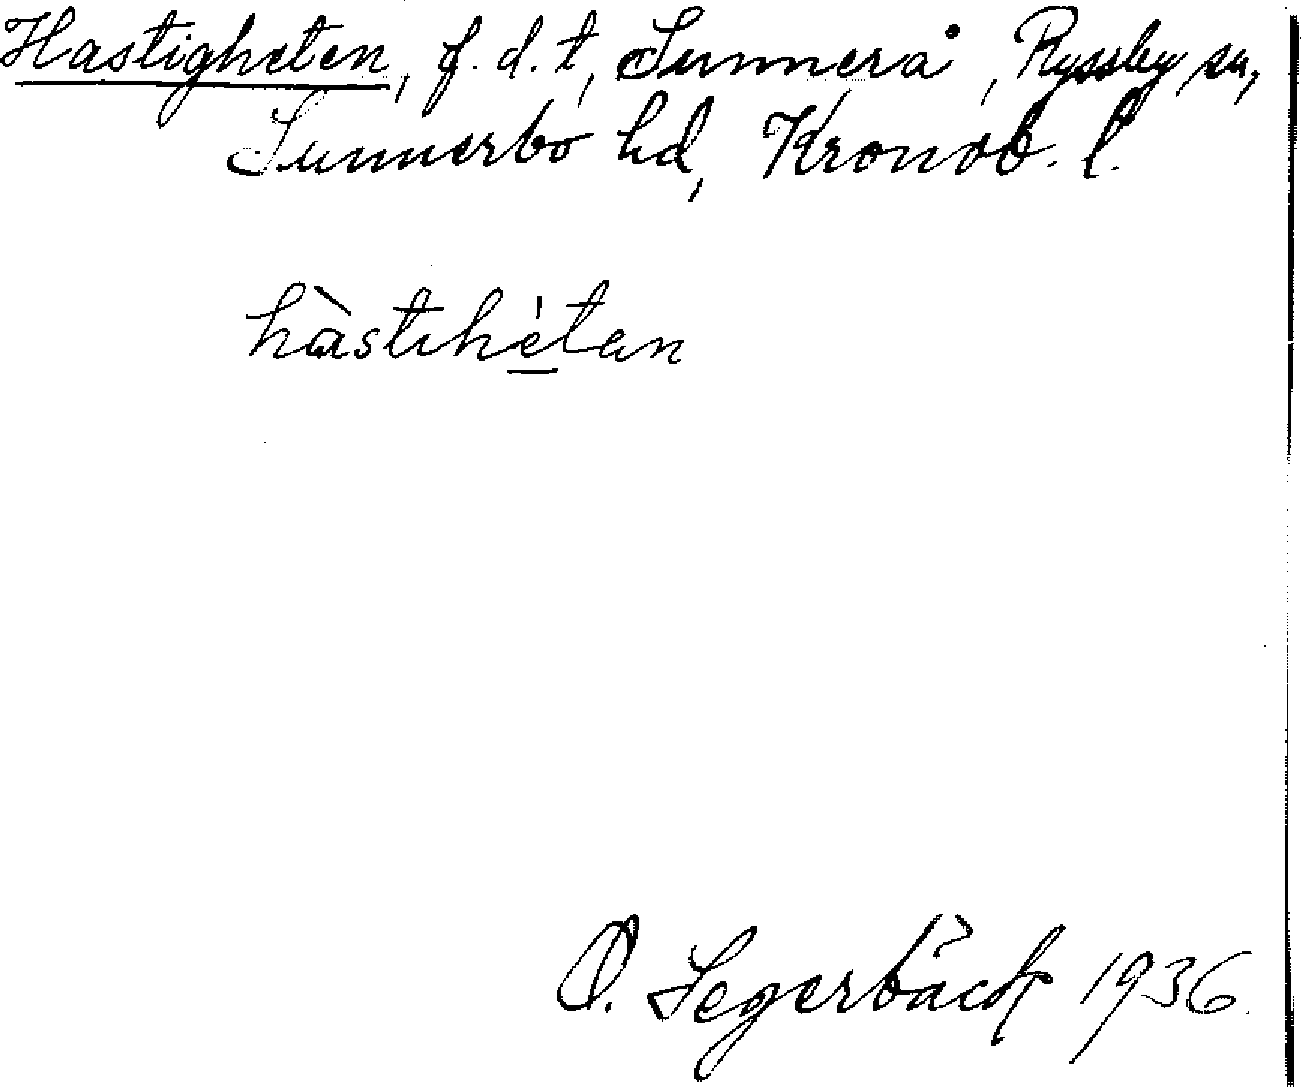 Hastigheten, f. d. t, Sunnerå, Ryssby sn,
Sunnerbo hd, Kronob. l.
hàstıhétan
O. Segerbäck 1936.